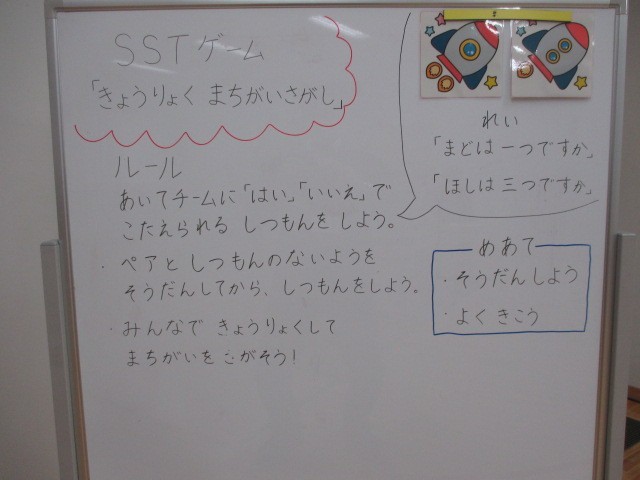 SSTゲーム
「きょうりょく まちがいさがし」
ルール
あいてチームに「はい」「いいえ」で
こたえられる しつもんを しよう。
・ペアと しつもんのないようを
そうだんしてから、しつもんをしよう。
・みんなで きょうりょくして
まちがいを さがそう!
れい
「まどは 一つですか」
「ほしは 三つですか」
めあて
・そうだん しよう
・よく きこう